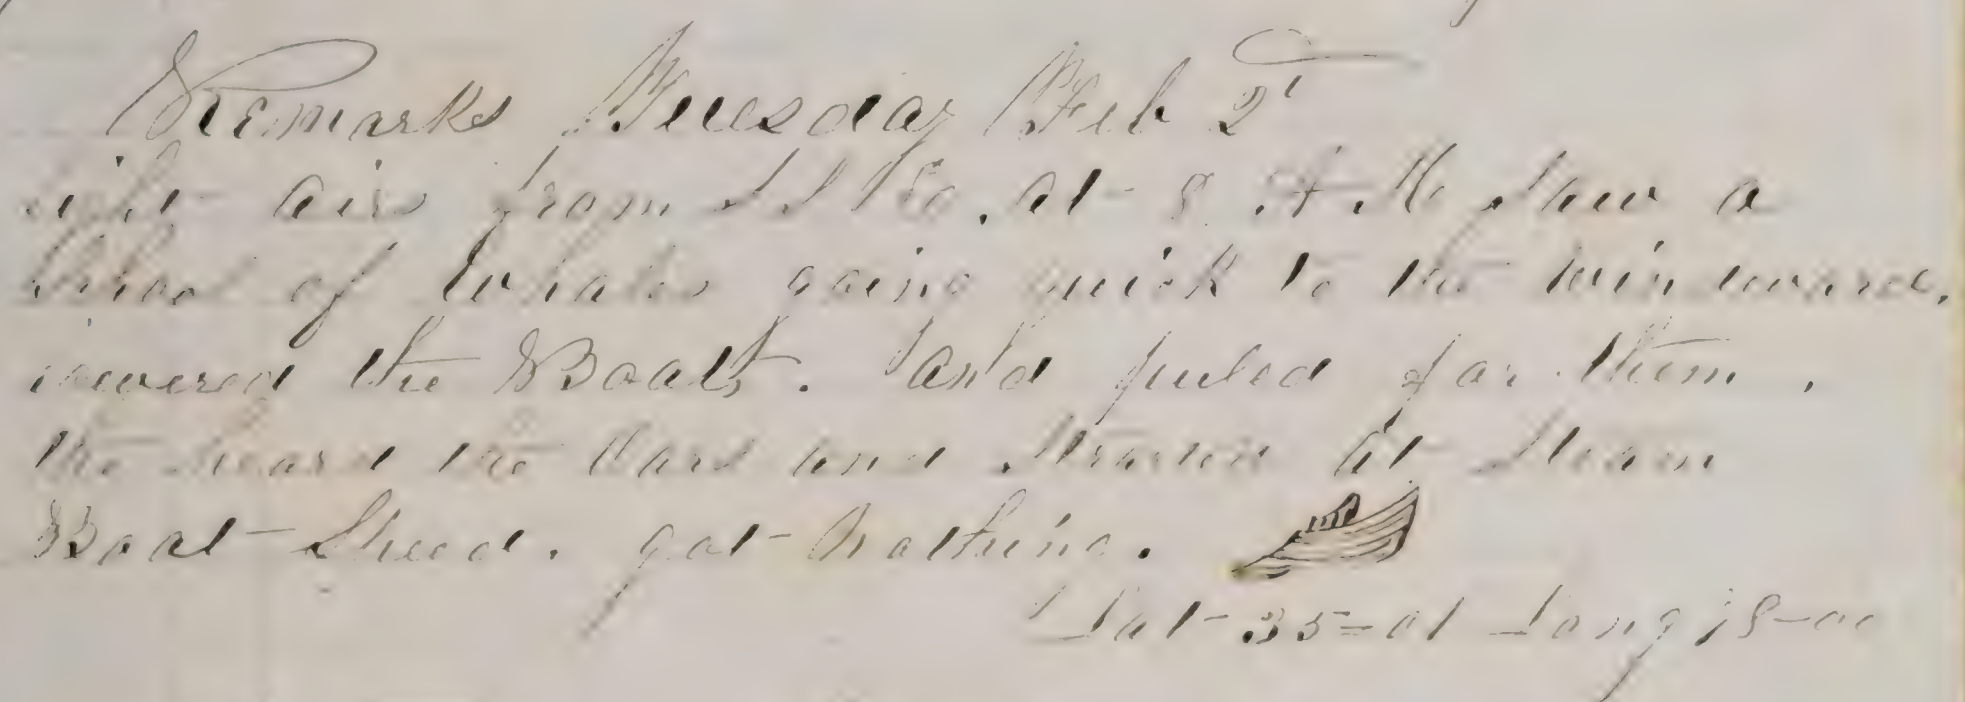 Remarks Tuesday Feb 2d
light airs from S S E. at 8 A M saw a
of Whales going quick to the windward.
lowered the Boats. and puled for them.
the heard the Oars and at Steam
Boat Sheed. got Nothing.
Lat 35=01 Long 18-00